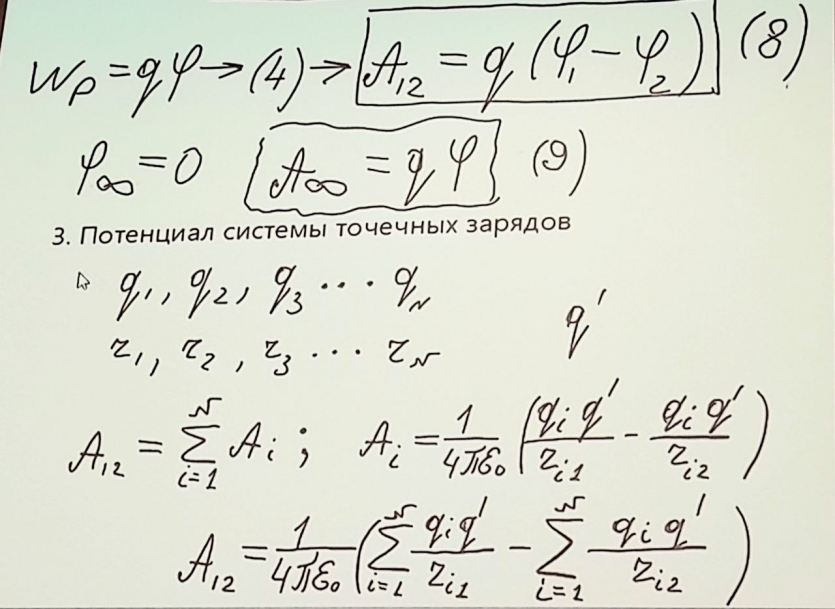 W_p = qφ → (4) → A₁₂ = q(φ₁ − φ₂) (8)
φ∞ = 0 A∞ = qφ (9)
3. Потенциал системы точечных зарядов
q₁, q₂, q₃ ... q_N
q′
r₁, r₂, r₃ ... r_N
A₁₂ = ∑_{i=1}^{N} A_i ; A_i = 1/(4πε₀) (q_i q′/r_{i1} − q_i q′/r_{i2})
A₁₂ = 1/(4πε₀) (∑_{i=1}^{N} q_i q′/r_{i1} − ∑_{i=1}^{N} q_i q′/r_{i2})